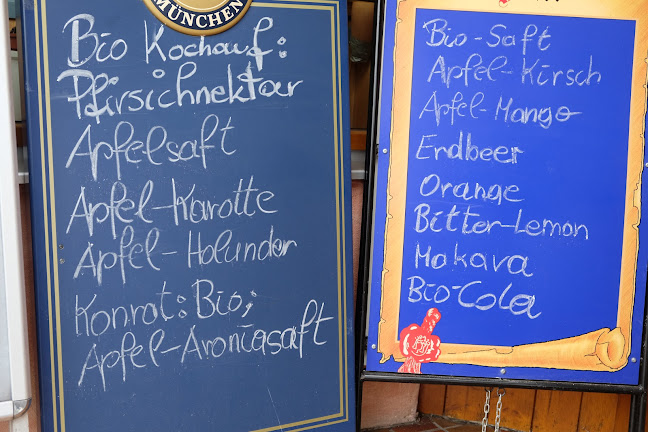 MÜNCHEN
Bio Kochauf:
Pfirsichnektar
Apfelsaft
Apfel-Karotte
Apfel-Holunder
Konrat: Bio;
Apfel-Aroniasaft
Bio-Saft
Apfel-Kirsch
Apfel-Mango
Erdbeer
Orange
Bitter-Lemon
Makava
Bio-Cola